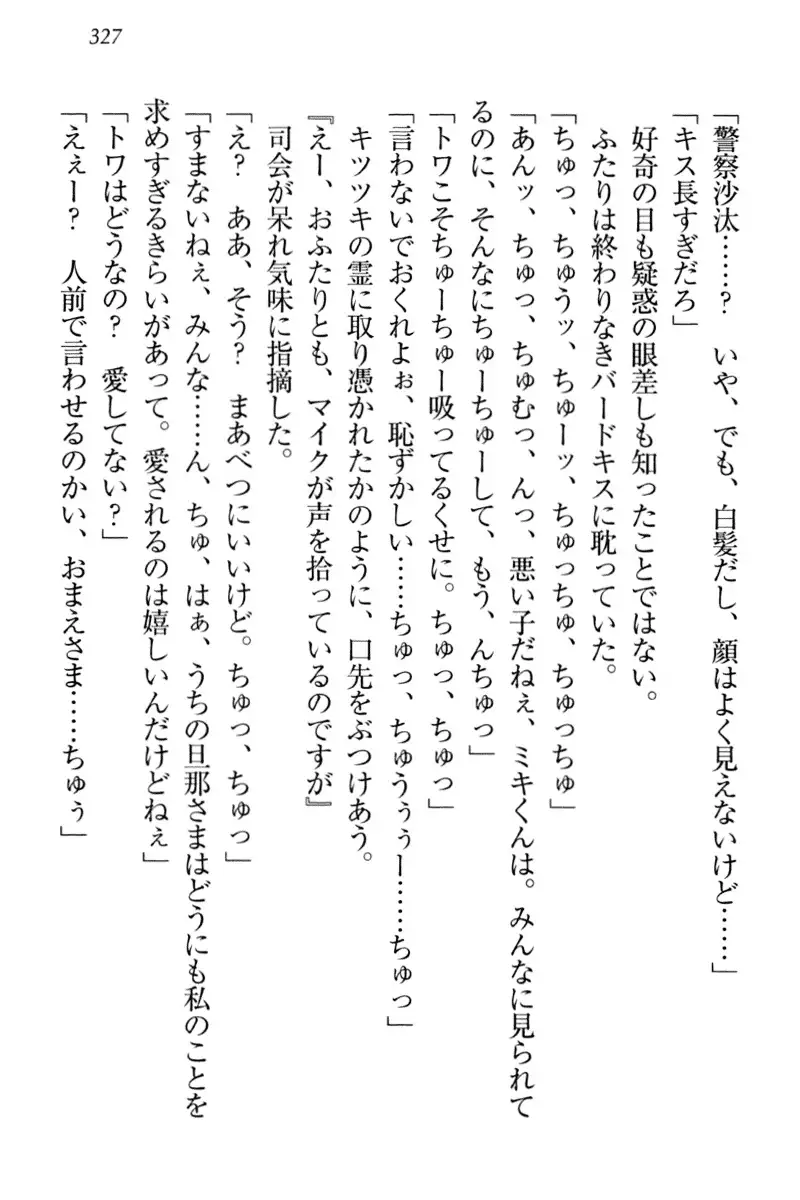 327
「警察沙汰……？　いや、でも、白髪だし、顔はよく見えないけど……」
「キス長すぎだろ」
好奇の目も疑惑の眼差しも知ったことではない。
ふたりは終わりなきバードキスに耽っていた。
「ちゅっ、ちゅうッ、ちゅーッ、ちゅっちゅ、ちゅっちゅ」
「あんッ、ちゅっ、ちゅむっ、んっ、悪い子だねぇ、ミキくんは。みんなに見られて
るのに、そんなにちゅーちゅーして、もう、んちゅっ」
「トワこそちゅーちゅー吸ってるくせに。ちゅっ、ちゅっ」
「言わないでおくれよぉ、恥ずかしい……ちゅっ、ちゅうぅぅー……ちゅっ」
キツツキの霊に取り憑かれたかのように、口先をぶつけあう。
『えー、おふたりとも、マイクが声を拾っているのですが』
司会が呆れ気味に指摘した。
「え？　ああ、そう？　まあべつにいいけど。ちゅっ、ちゅっ」
「すまないねぇ、みんな……ん、ちゅ、はぁ、うちの旦那さまはどうにも私のことを
求めすぎるきらいがあって。愛されるのは嬉しいんだけどねぇ」
「トワはどうなの？　愛してない？」
「えぇー？　人前で言わせるのかい、おまえさま……ちゅぅ」